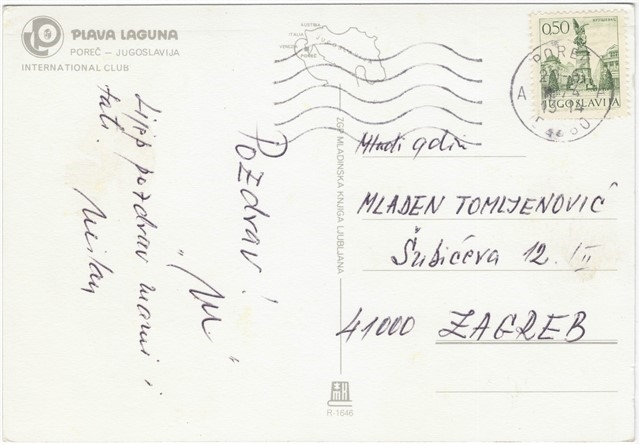 PLAVA LAGUNA
POREČ – JUGOSLAVIJA
INTERNATIONAL CLUB
AUSTRIA
ITALIA
POREČ
0,50
JUGOSLAVIJA
Pozdrav!
"M"
Lijep pozdrav mami i
tati.
Milan
ZGP MLADINSKA KNJIGA LJUBLJANA
R-1646
Mladi gdin
MLADEN TOMLJENOVIĆ
Šubićeva 12. III
41000 ZAGREB